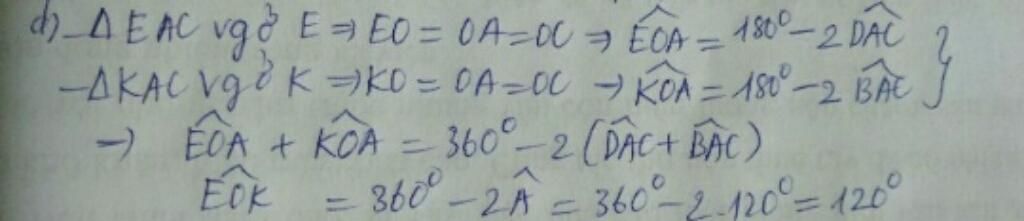 d) - Δ EAC vg ở E ⇒ EO = OA = OC ⇒ \widehat{EOA} = 180° - 2 \widehat{DAC} }
- Δ KAC vg ở K ⇒ KO = OA = OC → \widehat{KOA} = 180° - 2 \widehat{BAC}
→ \widehat{EOA} + \widehat{KOA} = 360° - 2 (\widehat{DAC} + \widehat{BAC})
\widehat{EOK} = 360° - 2 \widehat{A} = 360° - 2.120° = 120°